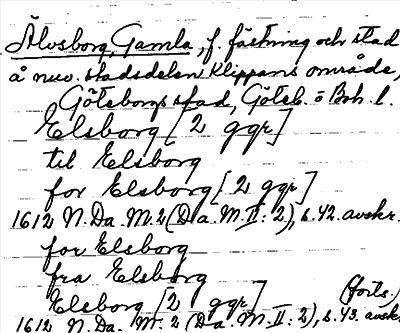 Älvsborg, Gamla, f. fästning och stad
å nuv. stadsdelen Klippans område,
Göteborgs stad, Göteb. o Boh. l.
Elsborg [2 ggr]
til Elsborg
for Elsborg [2 ggr]
1612 N. Da. M. 2 (Da. M. II: 2), s. 42. avskr.
for Elsborg
fra Elsborg
Elsborg [2 ggr] (forts.)
1612 N. Da. M. 2 (Da. M. II: 2), s. 43. avskr.